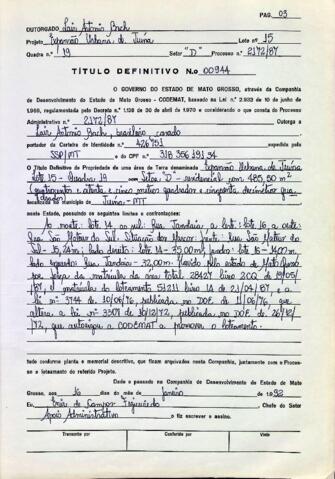 PAG. 03
OUTORGADO Lair Antônio Bach
Projeto Expansão Urbana de Juína Lote nº 15
Quadra n.º 19 Setor "D" Processo n.º 2172/87
TÍTULO DEFINITIVO N.o 00944
O GOVERNO DO ESTADO DE MATO GROSSO, através da Companhia
de Desenvolvimento do Estado de Mato Grosso - CODEMAT, baseado na Lei n.º 2.932 de 10 de junho de
1.969, regulamentada pelo Decreto n.º 1.138 de 30 de abril de 1970 e considerando o que consta do Processo
Administrativo n.º 2172/87 Outorga a
Lair Antônio Bach, brasileiro, casado
portador da Carteira de Identidade n.º 426751 expedida pelo
SSP/MT e do CPF n.º 318 356 191 34
O Título Definitivo de Propriedade de uma área de Terra denominada Expansão Urbana de Juína
Lote 15 - Quadra 19 com Setor "D" - residencial com 485,50 m²
(quatrocentos e oitenta e cinco metros quadrados e cinquenta decímetros qua
drados)
no município de Juína - MT
neste Estado, possuindo os seguintes limites e confrontações:
Ao norte: lote 14, ao sul: Rua lote 16, a oeste
Rua São Mateus do Sul. frente Rua São Mateus do
Sul - lote 14 - 35,00m, lote 16 -
lado esquerdo Rua - 32,00m
por força da matrícula da área total 28427 livro 2CQ 19/05/
81, e matrícula do loteamento 51211 livro 1A de 21/04/87 e a
lei nº 3744 de 10/06/76, publicada no DOE de 11/06/76, que
altera a lei nº 3307 de 18/12/72, publicada no DOE de 26/12/
72, que autorizou a CODEMAT a promover o loteamento.
tudo conforme planta e memorial descritivo, que ficam arquivados nesta Companhia, juntamente com o Proces-
so e loteamento do referido Projeto.
Dado e passado na Companhia de Desenvolvimento do Estado de Mato
Grosso, aos 16 dias do mês de janeiro de 1992
Eu, de Campos Figueiredo, Chefe do Setor
Apoio Administrativo o fiz escrever e assino.
Transcrito por Conferido por Visto